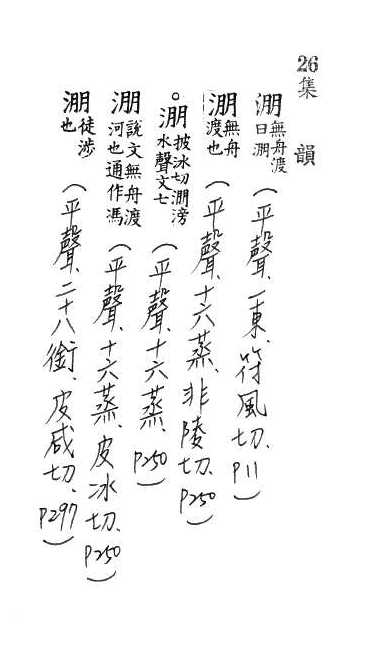 26集韻
淜無舟渡日淜(平聲、一東、符風切、P11)
淜無舟渡也(平聲、十六蒸、非陵切、P250)
。淜披冰切淜滂水聲文七(平聲、十六蒸、P250)
淜說文無舟渡河也通作馮(平聲、十六蒸、皮冰切、P250)
淜徒涉也(平聲、二十八銜、皮咸切、P297)